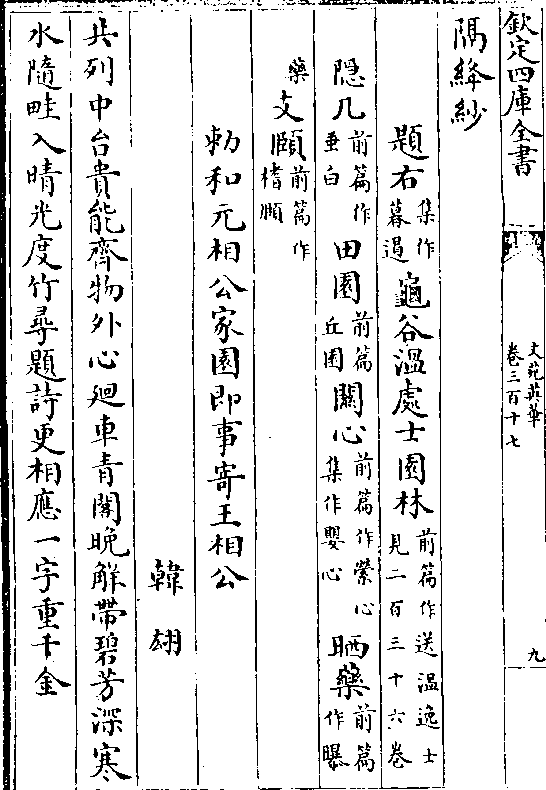 欽定四庫全書
文苑英華
卷三百十七
九
隔絳紗
題右集作暮過龜谷溫處士園林前篇作送溫逸士見二百三十六卷
隠几前篇作垂白田園前篇丘園關心前篇作縈心集作嬰心晒藥前篇作曝
藥支頤前篇作榰頤
勅和元相公家園即事寄王相公
韓翃
共列中台貴能齊物外心廻車青閣晚解帶碧芳深寒
水隨畦入晴光度竹尋題詩更相應一字重千金